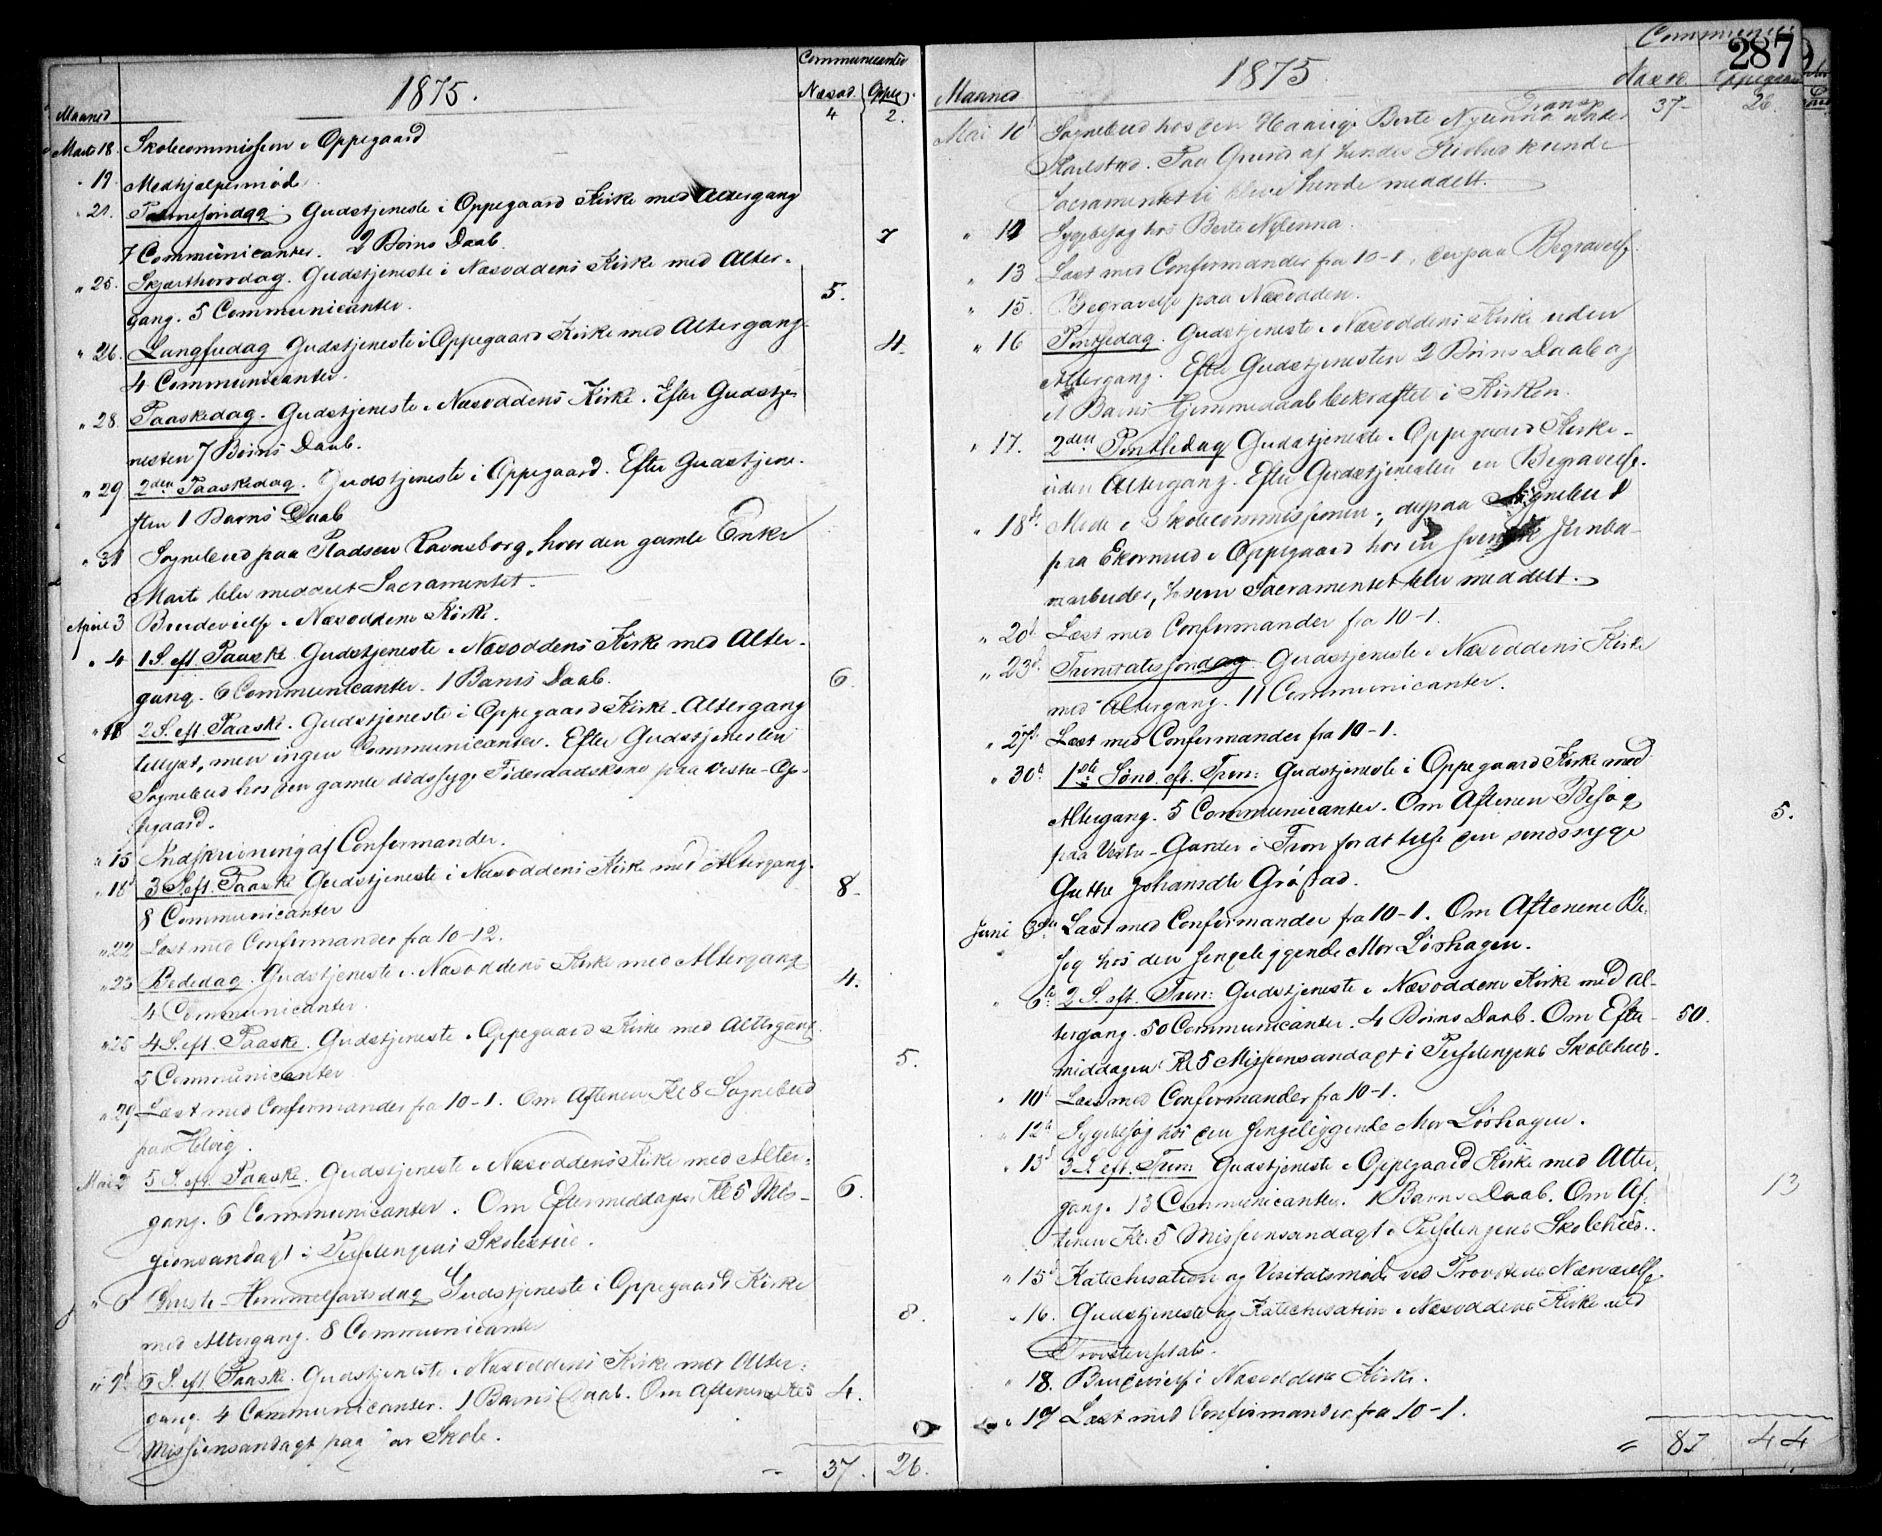 1875.
Communicanter
Maaned
Næsod. Oppeg.
4 2.
Marts 18. Skolecommission i Oppegaard
" 19. Medhjælpermøde.
" 21. Palmesøndag. Gudstjeneste i Oppegaard Kirke med Altergang
7 Communicanter. 2 Børns Daab. 7
" 25. Skjærthorsdag. Gudstjeneste i Næsoddens Kirke med Alter-
gang. 5 Communicanter. 5.
" 26. Langfredag Gudstjeneste i Oppegaard Kirke med Altergang. 4.
4 Communicanter.
" 28. Paaskedag. Gudstjeneste i Næsoddens Kirke. Efter Gudstje-
nesten 7 Børns Daab.
" 29 2den Paaskedag. Gudstjeneste i Oppegaard. Efter Gudstjene-
sten 1 Barns Daab
" 31 Sognebud paa Pladsen Ravnsborg, hvor den gamle Enke
Marte blev meddelt Sacramentet.
April 3 Brudevielse i Næsoddens Kirke.
" 4 1 S. eft. Paaske. Gudstjeneste i Næsoddens Kirke med Alter-
gang. 6 Communicanter. 1 Barns Daab. 6.
" 11 2 S. eft. Paaske. Gudstjeneste i Oppegaard Kirke. Altergang
tillyst, men ingen Communicanter. Efter Gudstjenesten
Sognebud hos den gamle dødssyge Føderaadskone paa vestre-Op-
pegaard.
" 15 Indskrivning af Confirmander.
" 18 3 S. eft. Paaske Gudstjeneste i Næsoddens Kirke med Altergang.
8 Communicanter 8.
" 22 Læst med Confirmander fra 10-12.
" 23 Bededag. Gudstjeneste i Næsoddens Kirke med Altergang 4.
4 Communicanter.
" 25 4 S. eft. Paaske. Gudstjeneste i Oppegaard Kirke med Altergang.
5 Communicanter 5.
" 29 Læst med Confirmander fra 10-1. Om Aftenen Kl 8 Sognebud
paa Helvig.
Mai 2 5 S. eft. Paaske. Gudstjeneste i Næsoddens Kirke med Alter-
gang. 6 Communicanter. Om Eftermiddagen Kl 5 Mis- 6.
sionsandagt i Præstengens Skolestue.
" 6 Christi-Himmelfartsdag Gudstjeneste i Oppegaards Kirke
med Altergang. 8 Communicanter 8.
" 9 6 S. eft. Paaske. Gudstjeneste i Næsoddens Kirke med Alter-
gang. 4 Communicanter. 1 Barns Daab. Om Aftenen Kl 5 4.
Missionsandagt paa Skole.
37. 26.
287
1875.
Communi
Maaned
Næsod Oppegaard
Transp 37- 26.
Mai 10 Sognebud hos den Berte Nylenna under
. Paa Grund af hendes kunde
Sacramentet ei blive hende meddelt.
" 12 Sygebesøg hos Berte Nylenna.
" 13 Læst med Confirmander fra 10-1, derpaa Begravelse.
" 15. Begravelse paa Næsodden.
" 16 Pintsedag. Gudstjeneste i Næsoddens Kirke uden
Altergang. Efter Gudstjenesten 2 Børns Daab og
et Barns Hjemmedaab bekræftet i Kirken.
" 17. 2den Pintsedag Gudstjeneste i Oppegaard Kirke
uden Altergang. Efter Gudstjenesten en Begravelse.
" 18 Møde i Skolecommissionen; derpaa Sognebud
paa Ekornrud i Oppegaard hos en svensk Jernba-
nearbeider, hvem Sacramentet blev meddelt.
" 20 Læst med Confirmander fra 10-1.
" 23 Trinitatissøndag. Gudstjeneste i Næsoddens Kirke
med Altergang. 11 Communicanter.
" 27 Læst med Confirmander fra 10-1.
" 30 1ste Sønd. eft. Trin: Gudstjeneste i Oppegaard Kirke med
Altergang. 5 Communicanter. Om Aftenen Besøg 5.
paa Vestre-Garder i Fron for at trøste den sindssyge
Johansdtr Grøstad.
Juni 3die Læst med Confirmander fra 10-1. Om Aftenen Be-
søg hos den sengeliggende Mor Løshagen.
" 6te 2 S. eft. Trin: Gudstjeneste i Næsoddens Kirke med Al-
tergang. 50 Communicanter. 4 Børns Daab. Om Efter- 50.
middagen Kl 5 Missionsandagt i Præstengens Skolehus.
" 10 Læst med Confirmander fra 10-1.
" 12 Sygebesøg hos den sengeliggende Mor Løshagen.
" 13 3 S. eft. Trin: Gudstjeneste i Oppegaard Kirke med Alter-
gang. 13 Communicanter. 1 Barns Daab. Om Af- 13
tenen Kl. 5 Missionsandagt i Præstengens Skolehus.
" 15 Katechisation og Visitatsmøde ved Provstens Nærværelse
" 16. Gudstjeneste og Katechisation i Næsoddens Kirke ved
Provstevisitats.
" 18. Brudevielse i Næsoddens Kirke.
" 19 Læst med Confirmander fra 10-1.
87 44